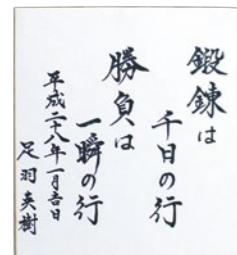 鍛錬は
千日の行
勝負は
一瞬の行
平成二十八年一月吉日
足羽英樹